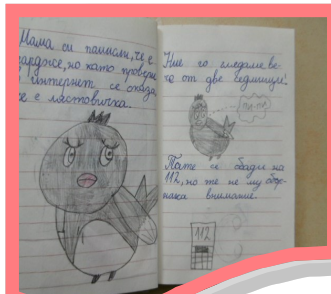 Мама си помисли, че е
гарджe, но като провери
в интернет се оказа,
че е лястовичка.
Ние го гледаме ве-
че от две седмици!
пи-пи
Тате се обади на
112, но те не му обър-
наха внимание.
112